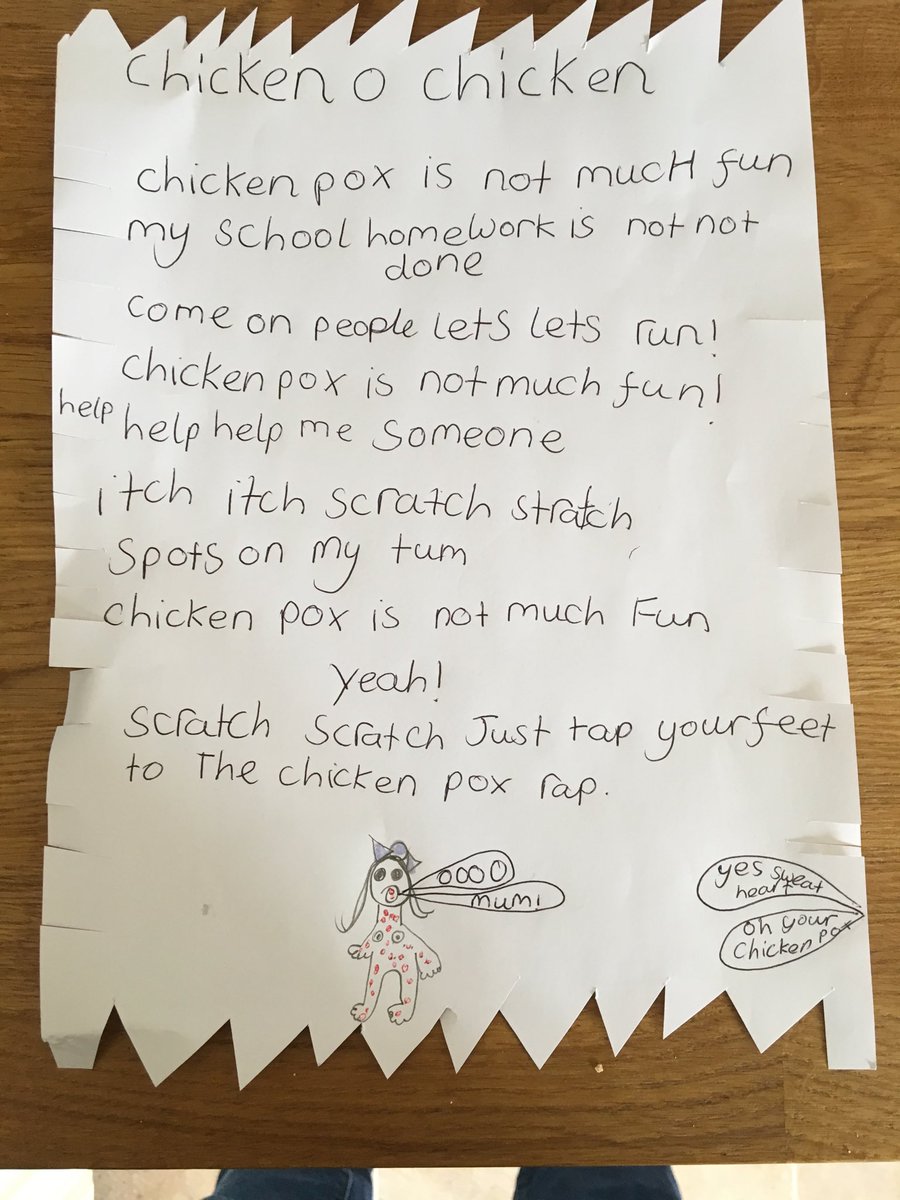 Chicken o chicken
chicken pox is not mucH fun
my school homework is not not
done
come on people lets lets run!
Chicken pox is not much fun!
help help help me someone
itch itch scratch stratch
Spots on my tum
chicken pox is not much Fun
Yeah!
Scratch Scratch Just tap your feet
to The chicken pox rap.
oooo
mum!
yes sweat
hearteat
oh your
Chicken pox